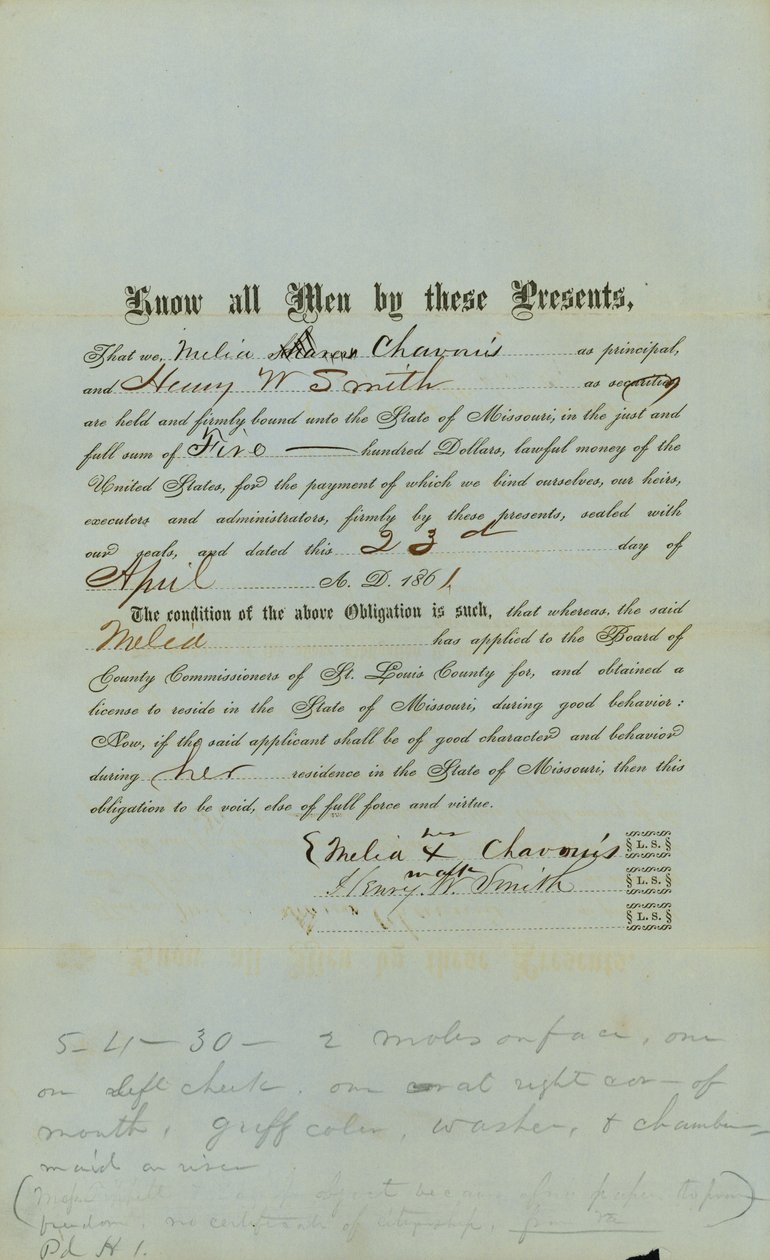 Know all Men by these Presents,
That we, Melia Chavouis as principal,
and Henry W Smith as securities
are held and firmly bound unto the State of Missouri, in the just and
full sum of Five — hundred Dollars, lawful money of the
United States, for the payment of which we bind ourselves, our heirs,
executors and administrators, firmly by these presents, sealed with
our seals, and dated this 23d day of
April A. D. 1861.
The condition of the above Obligation is such, that whereas, the said
Melia has applied to the Board of
County Commissioners of St. Louis County for, and obtained a
license to reside in the State of Missouri, during good behavior:
Now, if the said applicant shall be of good character and behavior
during her residence in the State of Missouri, then this
obligation to be void, else of full force and virtue.
her
Melia X Chavouis L. S.
mark
Henry W. Smith L. S.
L. S.
5-4-30- 2 moles on face, one
on left cheek. one at right cor- of
mouth, griff color, washer, & chamber-
maid on river
object because papers to prove
freedom, no certificate of citizenship,
Pd H 1.